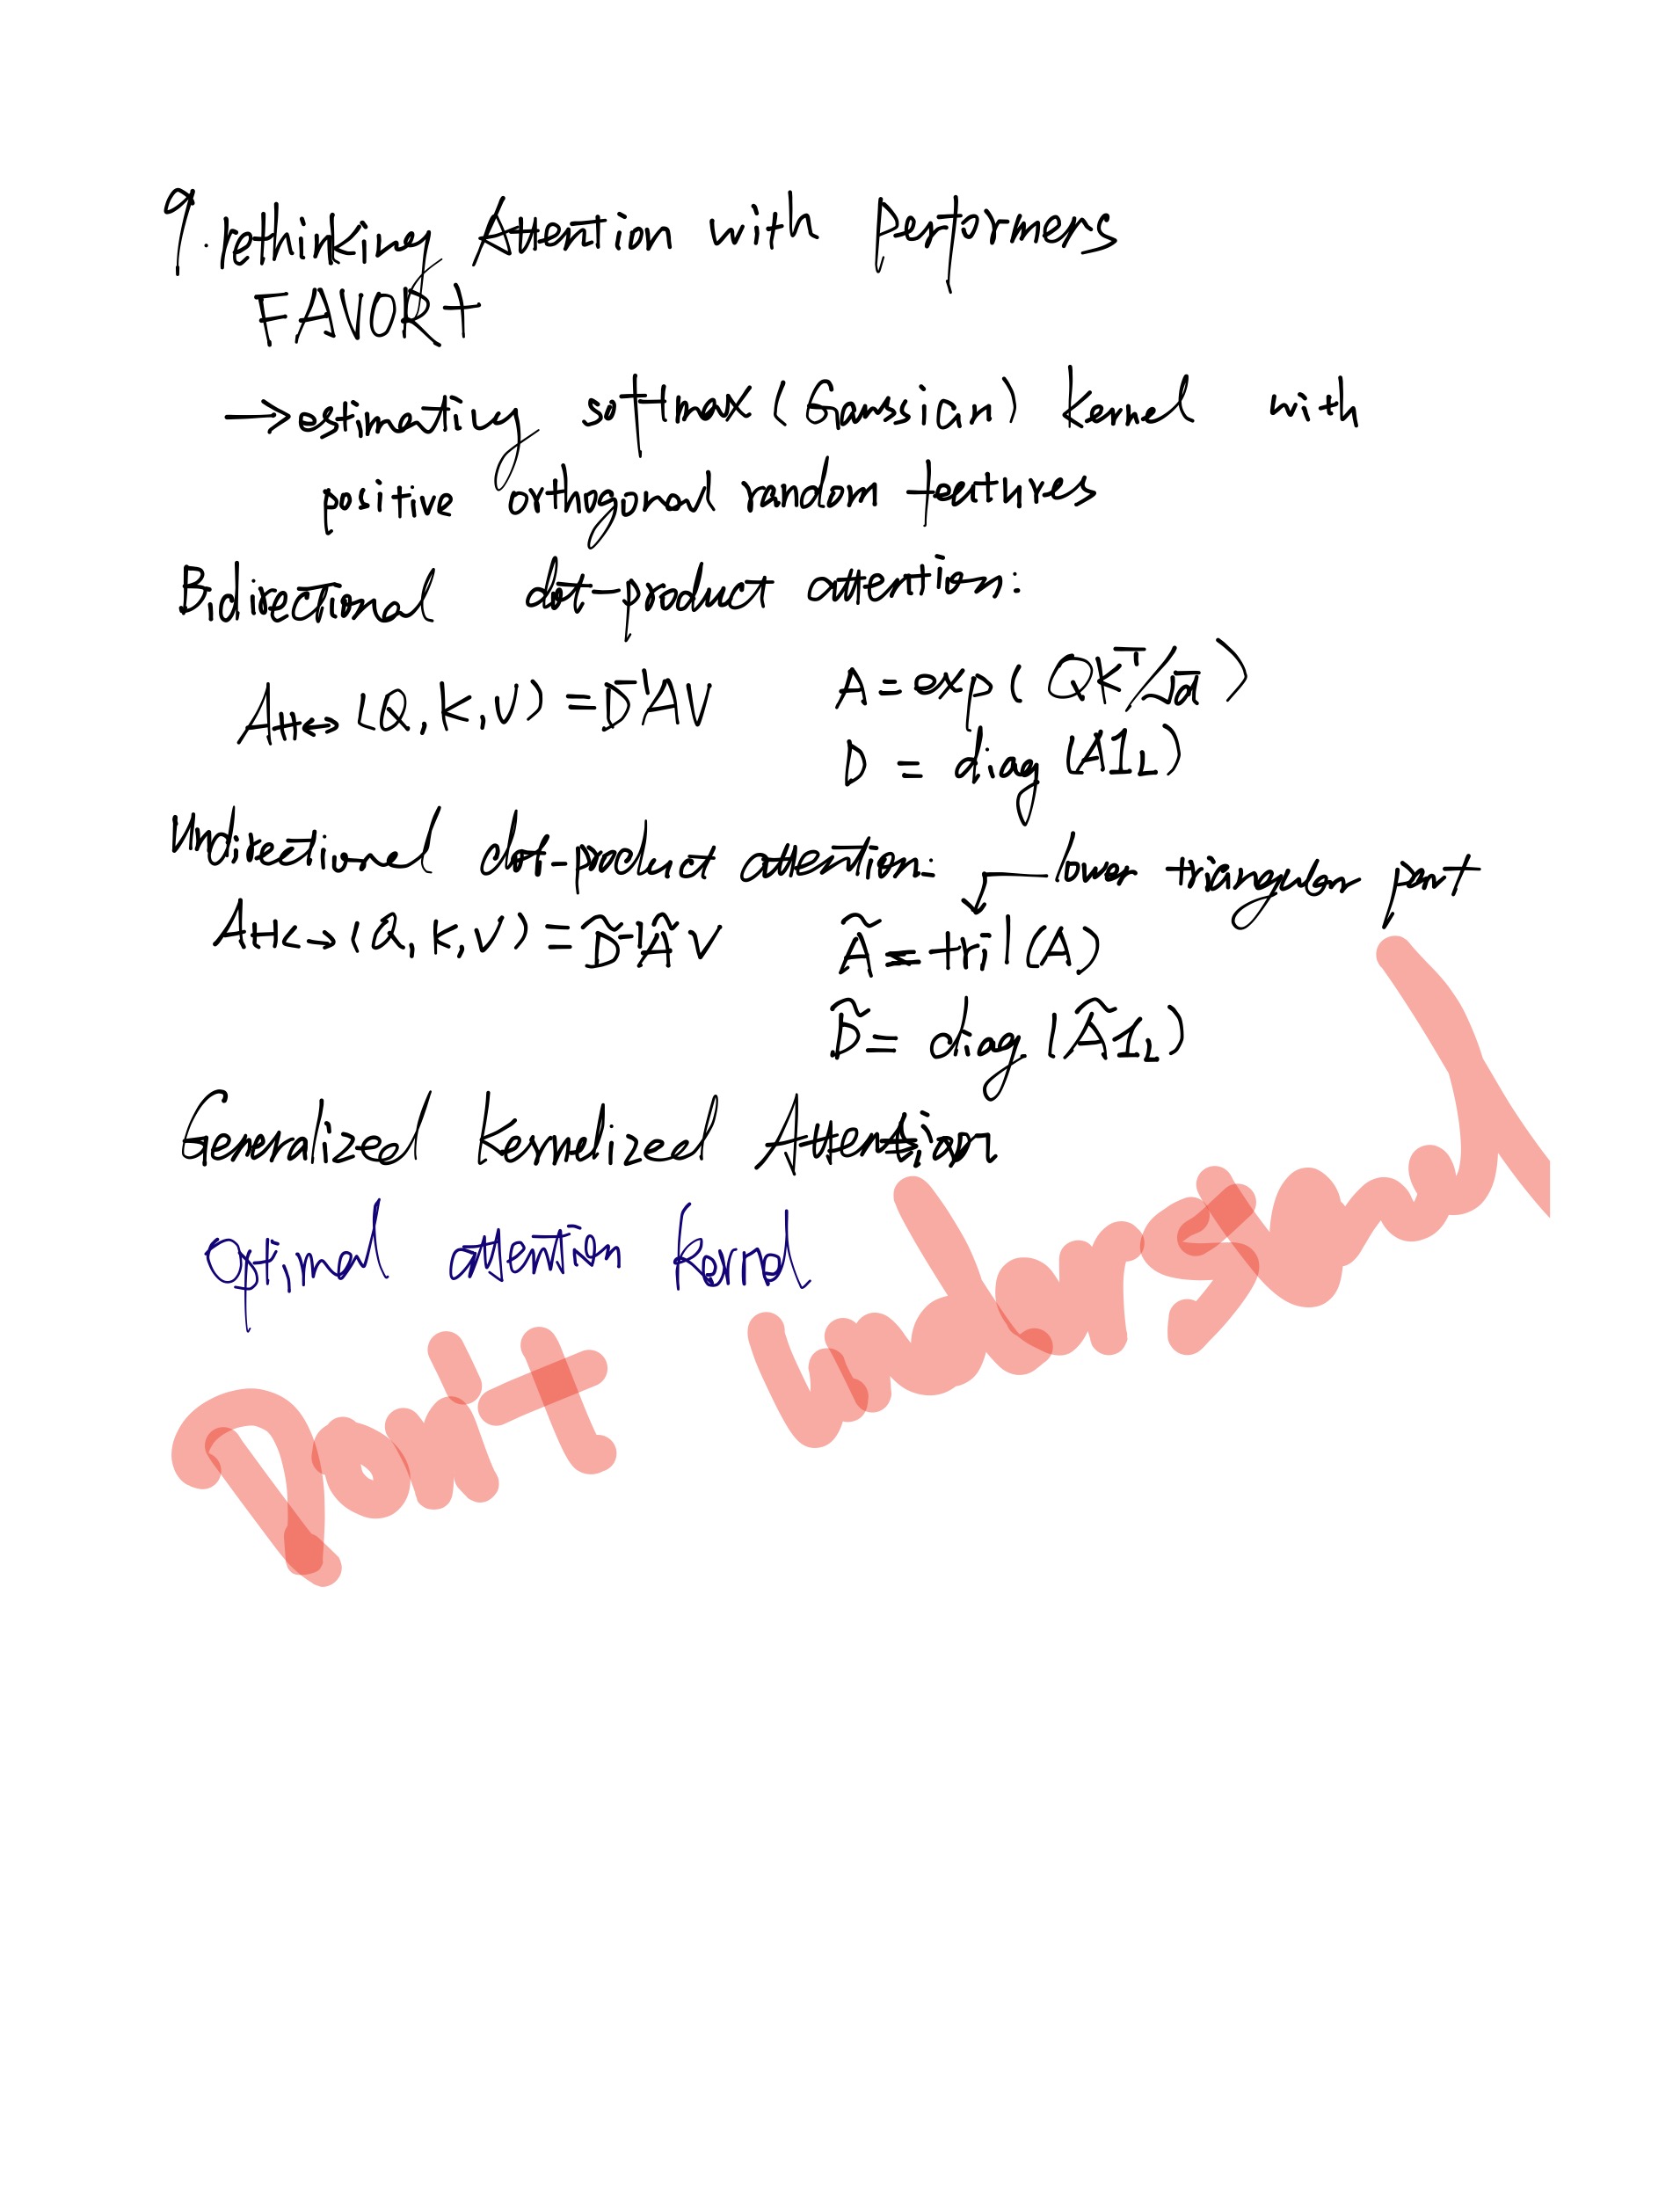 9. Rethinking Attention with Performers
FAVOR+
→ estimating softmax (Gaussian) kernel with
positive orthogonal random features
Bidirectional dot-product attention:
Att↔(Q, K, V) = D⁻¹AV A = exp(QKᵀ/√d)
D = diag(A1_L)
Unidirectional dot-product attention: lower triangular part
Att↔(Q, K, V) = D̃⁻¹ÃV Ã = tril(A)
D̃ = diag(Ã1_L)
Generalized Kernelized Attention
optimal attention kernel
Don't understand